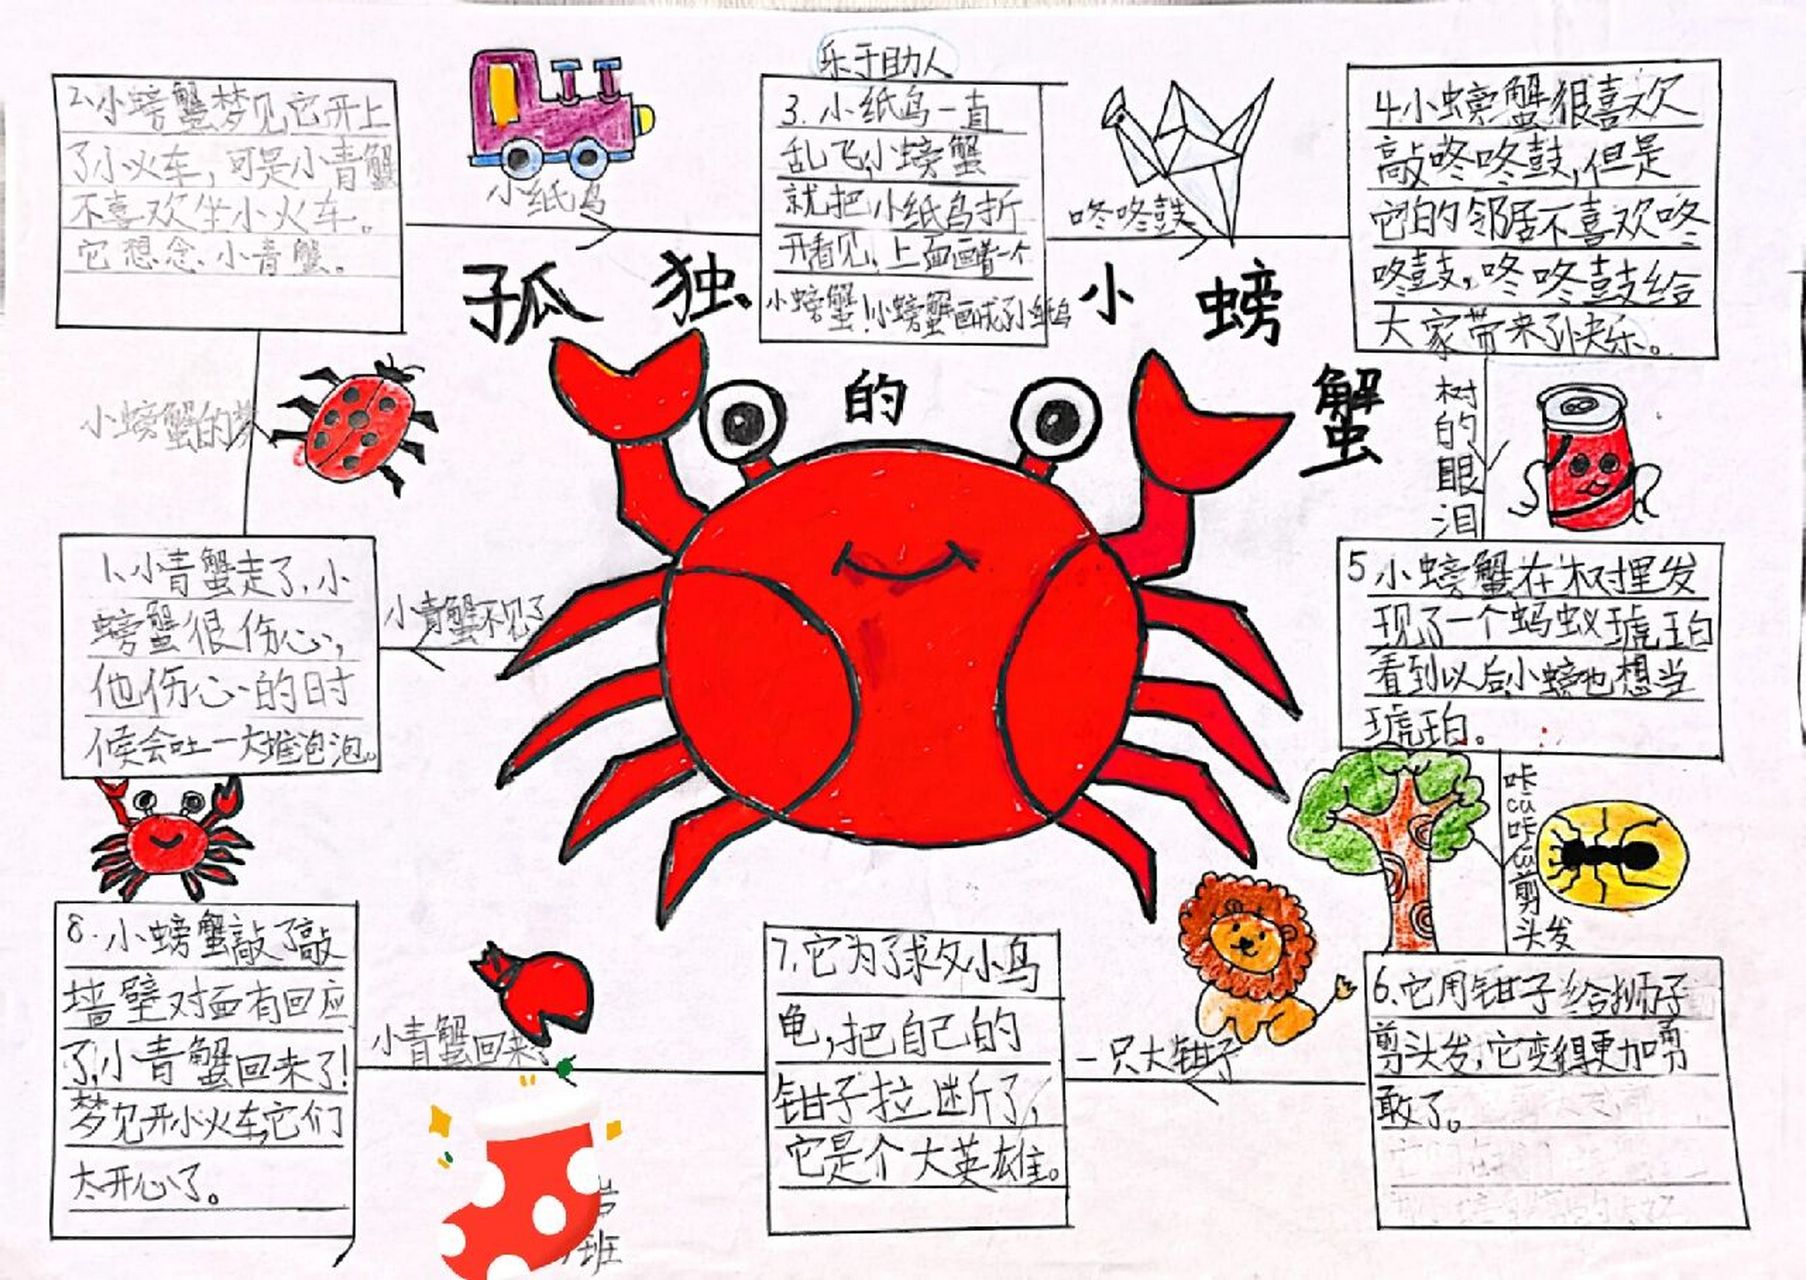 孤独的小螃蟹
小青蟹不见了
1、小青蟹走了,小
螃蟹很伤心,
他伤心的时
候会吐一大堆泡泡。
小螃蟹的梦
2、小螃蟹梦见它开上
了小火车,可是小青蟹
不喜欢坐小火车。
它想念小青蟹。
小纸鸟
乐于助人
3.小纸鸟一直
乱飞,小螃蟹
就把小纸鸟折
开看见,上面画着一个
小螃蟹!小螃蟹画成了小纸鸟
咚咚鼓
4小螃蟹很喜欢
敲咚咚鼓,但是
它的邻居不喜欢咚
咚鼓,咚咚鼓给
大家带来了快乐。
树的眼泪
5小螃蟹在树里发
现了一个蚂蚁琥珀
看到以后,小螃也想当
琥珀。
咔cu咔cu剪
头发
6.它用钳子给狮子
剪头发,它变得更加勇
敢了。
一只大钳子
7.它为了救小乌
龟,把自己的
钳子拉断了,
它是个大英雄。
小青蟹回来了
8.小螃蟹敲了敲
墙壁对面有回应
了,小青蟹回来了!
梦见开小火车,它们
太开心了。
班